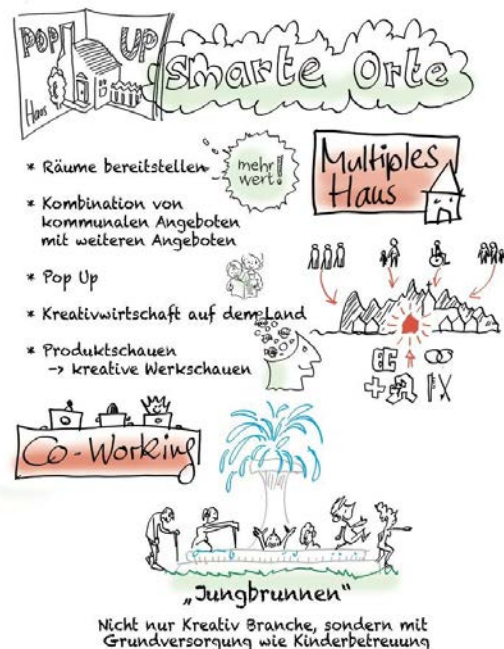 POP UP
Haus
smarte Orte
* Räume bereitstellen
mehr
wert!
Multiples
Haus
* Kombination von
kommunalen Angeboten
mit weiteren Angeboten
* Pop Up
* Kreativwirtschaft auf dem Land
* Produktschauen
→ kreative Werkschauen
Co-Working
„Jungbrunnen“
Nicht nur Kreativ Branche, sondern mit
Grundversorgung wie Kinderbetreuung